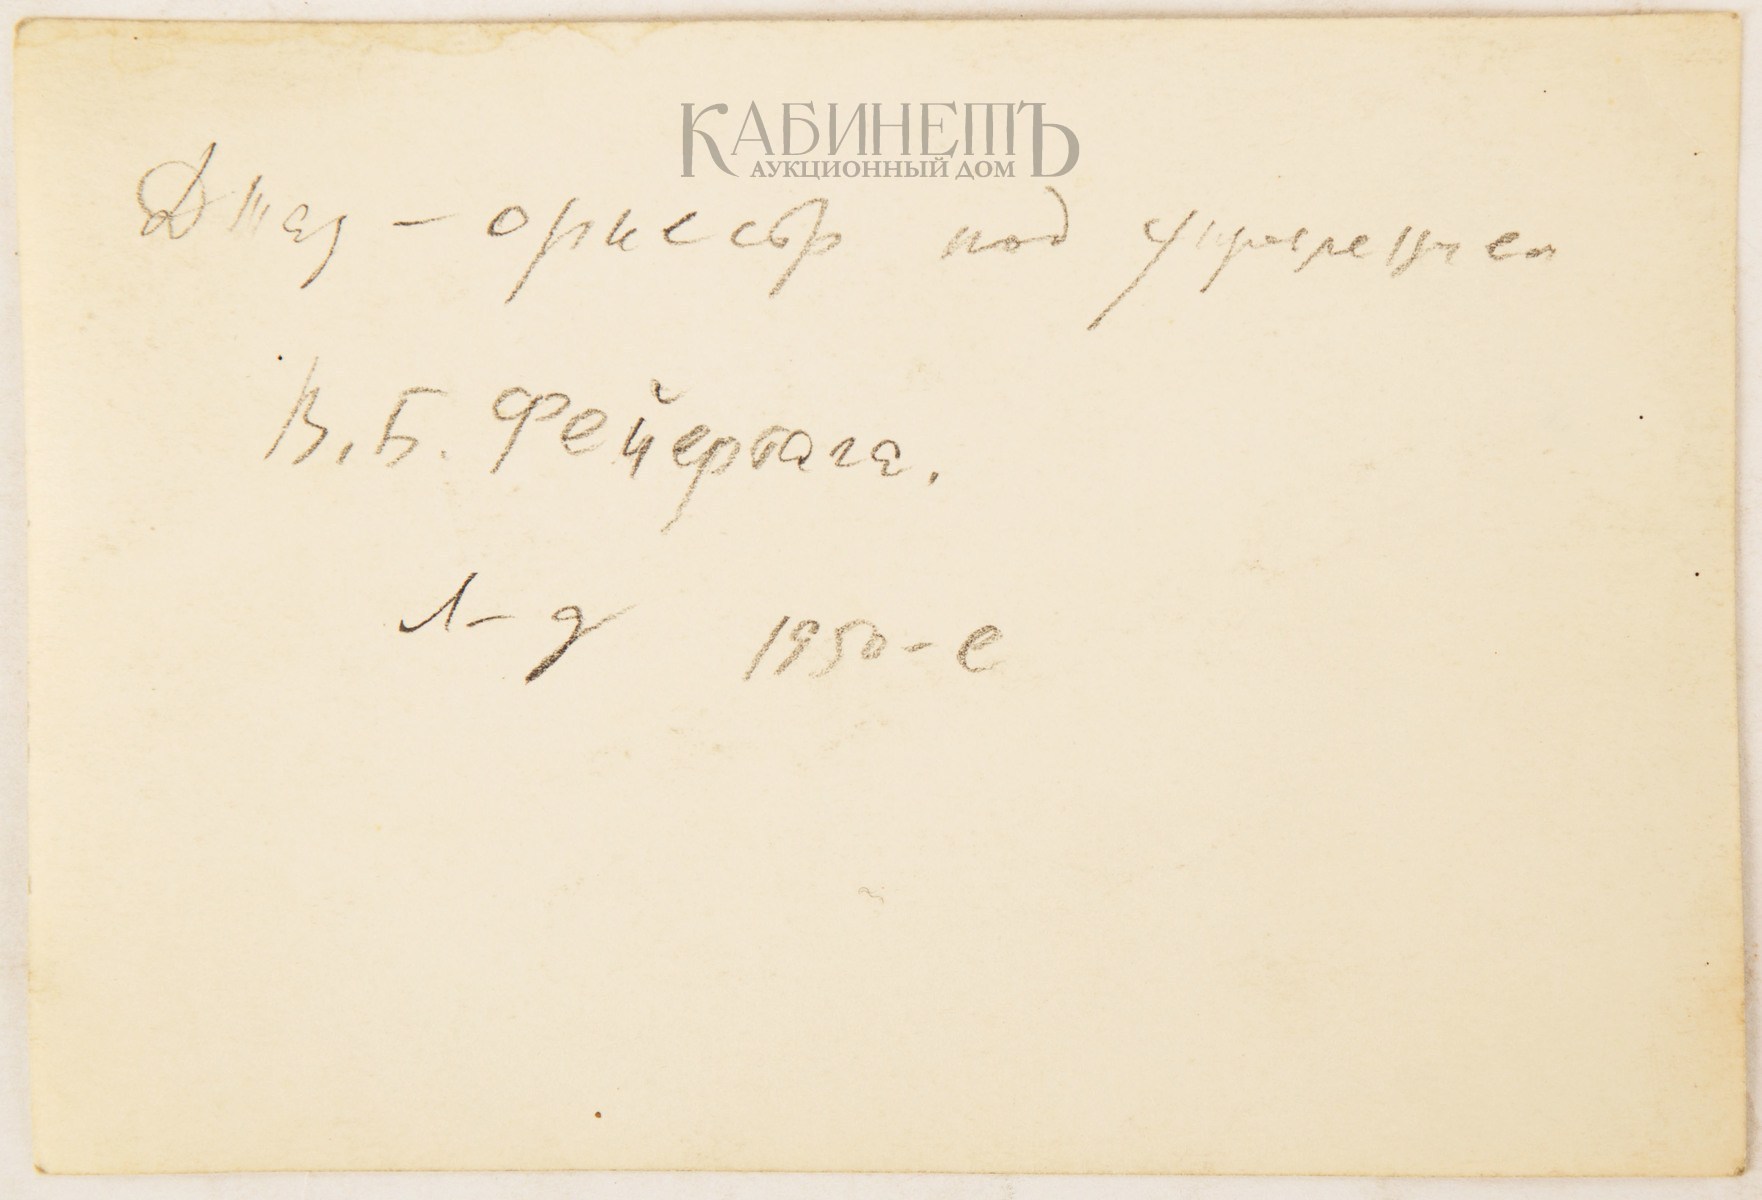 КАБИНЕТЪ
АУКЦИОННЫЙ ДОМ
Джаз - оркестр под управлением
В. Б. Фейертага.
Л-д 1950-е